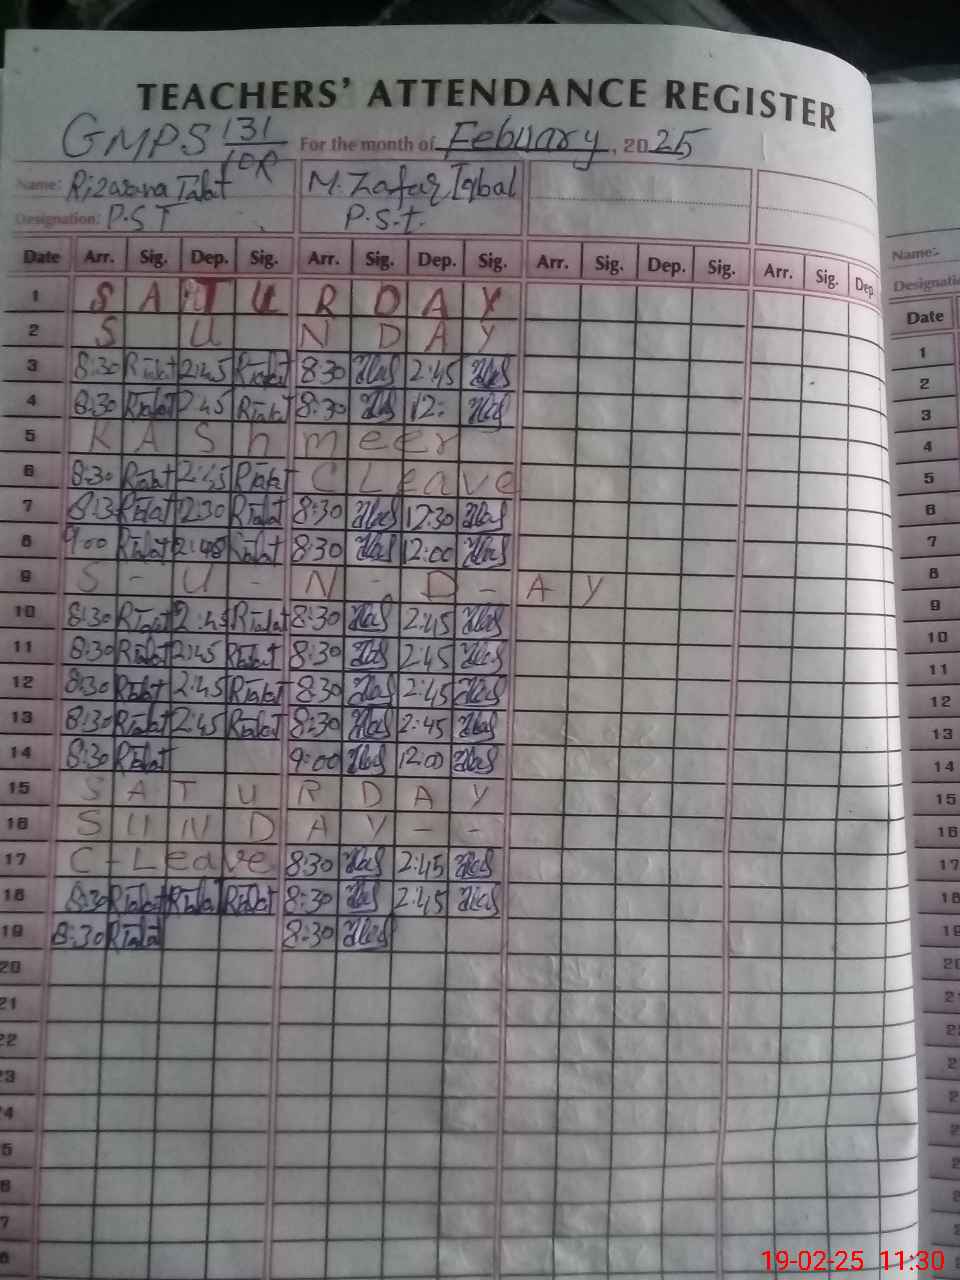 TEACHERS' ATTENDANCE REGISTER
GMPS 131/10R For the month of Februory, 2025
Name: Rizwana Talat M. Zafar Iqbal
Designation: P.S.T P.S.t.
Date Arr. Sig. Dep. Sig. Arr. Sig. Dep. Sig. Arr. Sig. Dep. Sig. Arr. Sig. Dep
1 S A T U R D A Y
2 S U N D A Y
3 8:30 RTalat 2:45 RTalat 8:30 2:45
4 8:30 RTalat 2:45 RTalat 8:30 12:
5 K A S h m e e r
6 8:30 RTalat 2:45 RTalat C Leave
7 8:3 RTalat 12:30 RTalat 8:30 12:30
8 9:00 RTalat RTalat 8:30 12:00
9 S - U - N - D - A Y
10 8:30 RTalat 2:45 RTalat 8:30 2:45
11 8:30 RTalat 2:45 RTalat 8:30 2:45
12 8:30 RTalat 2:45 RTalat 8:30 2:45
13 8:30 RTalat 2:45 RTalat 8:30 2:45
14 8:30 RTalat 9:00 12:00
15 S A T U R D A Y
16 S U N D A Y - -
17 C - Leave 8:30 2:45
18 8:30 RTalat RTalat RTalat 8:30 2:45
19 8:30 RTalat 8:30
20
21
22
23
24
5
6
7
Name:-
Designatio
Date
1
2
3
4
5
6
7
8
9
10
11
12
13
14
15
16
17
18
19
19-02-25 11:30